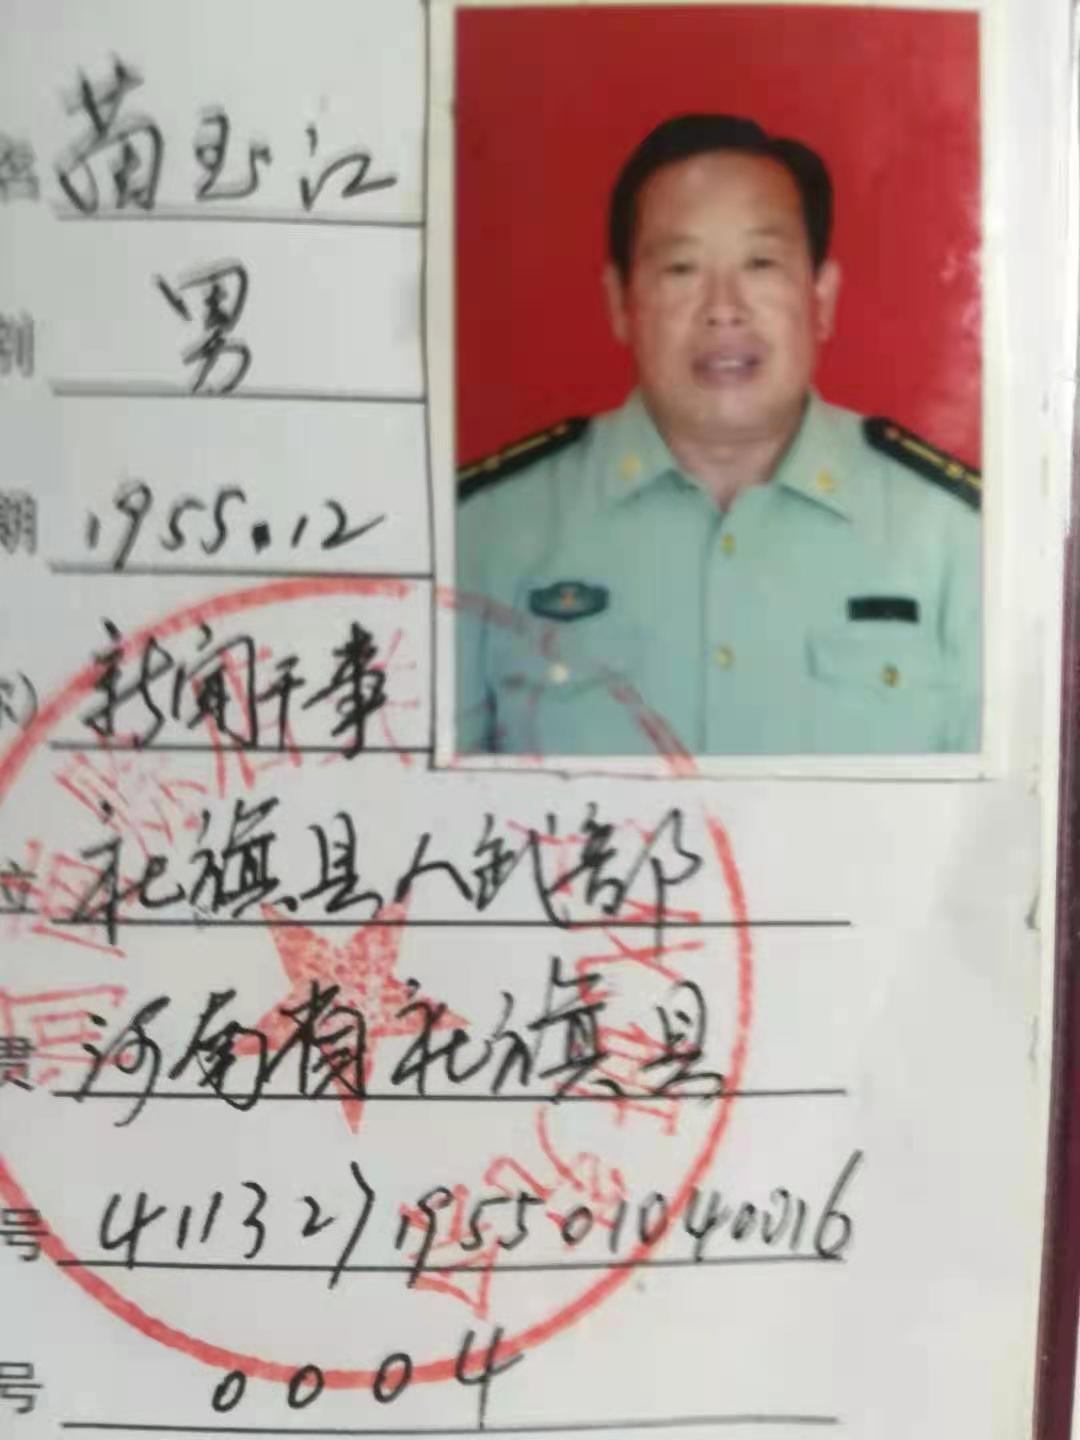 名 黄玉江
别 男
期 1955.12
新闻干事
立 社旗县人武部
贯 河南省社旗县
号 411327195501040016
号 0004